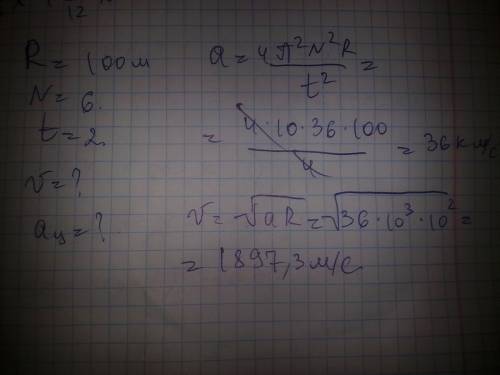 12
R = 100 м
N = 6.
t = 2.
v = ?
aц = ?
a = 4π²N²R / t² =
= 4·10·36·100 / 4 = 36 км/
v = √aR = √36·10³·10² =
= 1897,3 м/с.